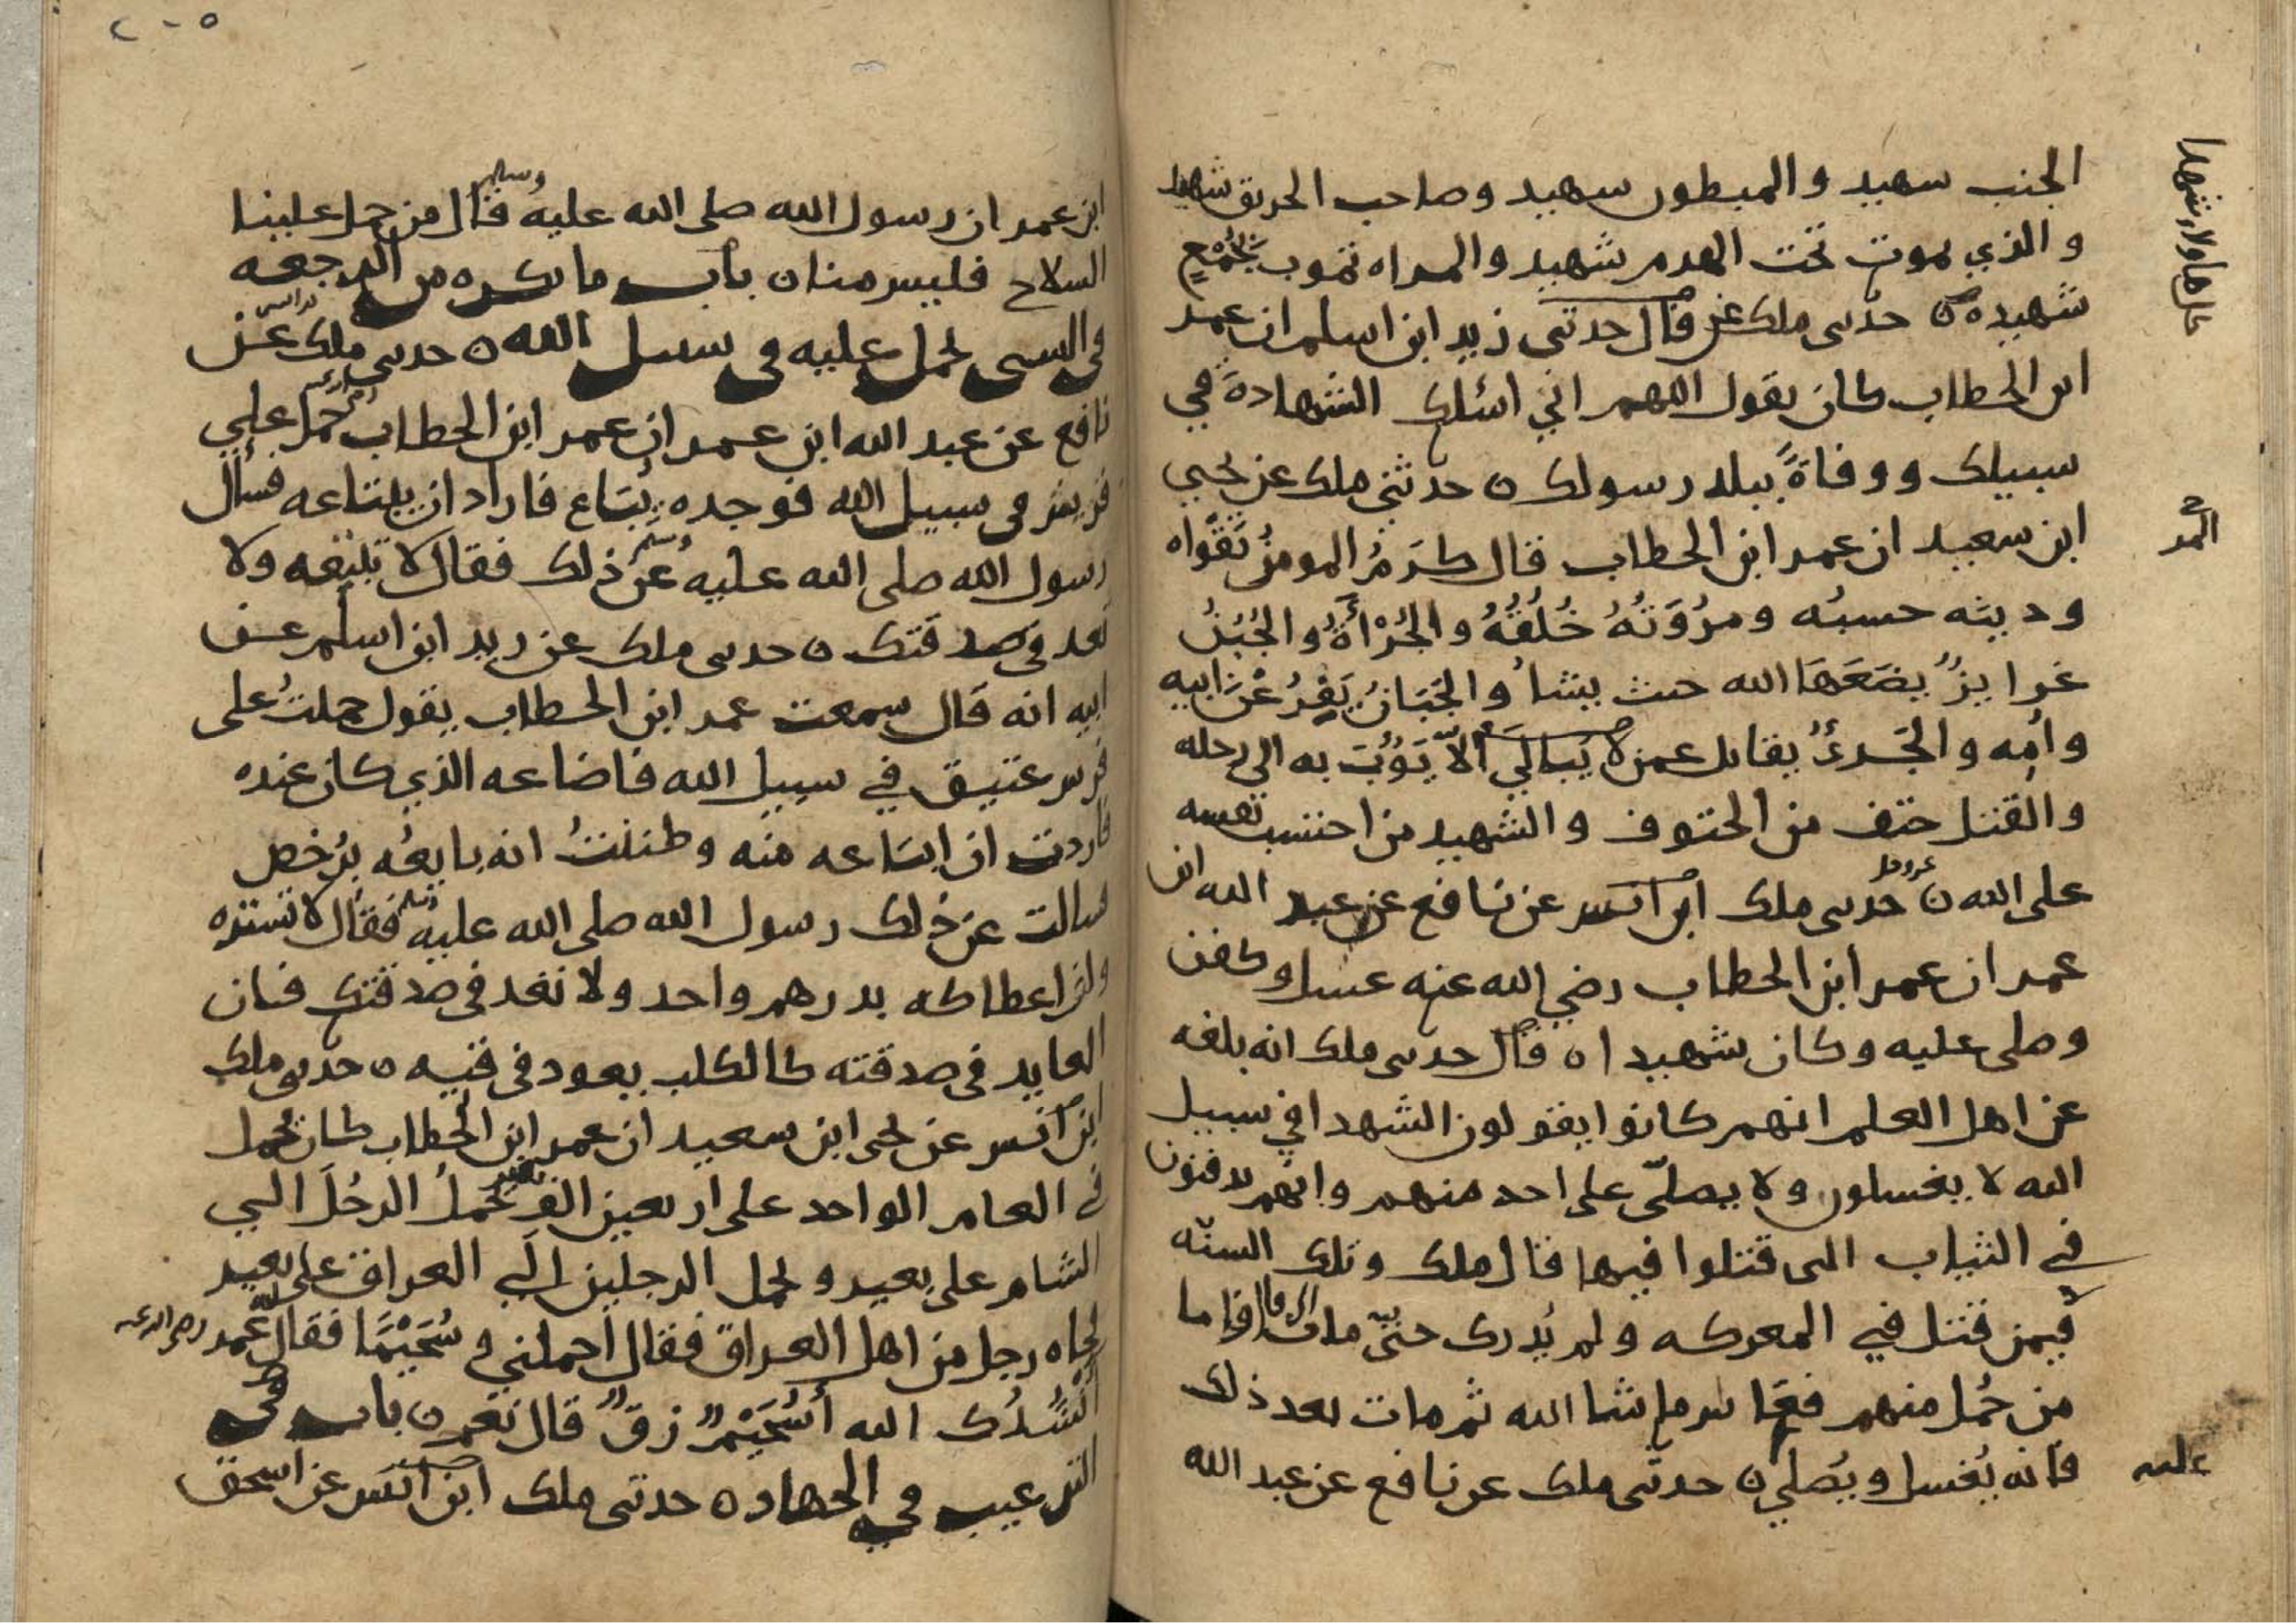 الجنب شهيد والمبطون شهيد وصاحب الحريق شهيد
والذي يموت تحت الهدم شهيد والمراه تموت بجُمْعٍ
شهيده ٥ حدثنى ملك عن قال حدثني زيد ابن اسلم ان عمر
ابن الخطاب كان يقول اللهم اني اسئلك الشهادة في
سبيلك ووفاةً ببلد رسولك ٥ حدثني ملك عن يحيي
ابن سعيد ان عمر ابن الخطاب قال كَرَمُ المومن تقواه
ودينه حسبُه ومرُوَتُهُ خُلُقُهُ والجُرْأَةُ والجُبْنُ
غرايزُ يضَعَهَا الله حيث يشأ والجَبَانُ يَفِرُ عْن ابيه
وأمه والجَرئُ يقاتل عمن لا يُبالي ألاّ يَؤُبَ به الي رحله
والقتل حتف من الحتوف والشهيد من احتسب نفسه
على الله عز وجل ٥ حدثنى ملك ابن انس عن نافع عن عبد الله ابن
عمر ان عمر ابن الخطاب رضي الله عنه غسل وكفن
وصلى عليه وكان شهيدا ٥ قال حدثنى ملك انه بلغه
عن اهل العلم انهم كانوا يقولون الشهدا في سبيل
الله لا يغسلون ولا يصلّى على احد منهم وانهم يدفنون
في الثياب التى قتلوا فيها قال ملك وتلك السنّه
فيمن قتل في المعركه ولم يُدرك حتّى مات قال فاما
من حُمل منهم فعاش ما شا الله ثم مات بعد ذلك
فانه يُغسل ويُصلي ٥ حدثنى ملك عن نافع عن عبد الله
عليه
ابن عمر ان رسول الله صلى الله عليه وسلم قال من حمل علينا
السلاح فليس منا ٥ باب ما يكره من الرجعه
في الشى يحمل عليه في سبيل الله ٥ حدثنى ملك عن
نافع عن عبد الله ابن عمر ان عمر ابن الخطاب حمل علي
فرس في سبيل الله فوجده يُبتاع فاراد ان يبتاعه فسأل
رسول الله صلى الله عليه وسلم عن ذلك فقال لا تبتعه ولا
تعد في صدقتك ٥ حدثنى ملك عن زيد ابن اسلم عن
ابيه انه قال سمعت عمر ابن الخطاب يقول حملتُ على
فرس عتيق في سبيل الله فاضاعه الذي كان عنده
فاردت ان ابتاعه منه وظننتُ انه بايعُه برُخص
فسالت عن ذلك رسول الله صلى الله عليه وسلم فقال لا تشتره
وان اعطاكه بدرهم واحد ولا تعد في صدقتك فان
العايد في صدقته كالكلب يعود في قيه ٥ حدثنى ملك
ابن انس عن يحى ابن سعيد ان عمر ابن الخطاب كان يحمل
في العام الواحد على اربعين الف بعير يحملُ الرجُلَ الي
الشام على بعير ويحمل الرجلين الي العراق على بعير
فجاه رجل من اهل العراق فقال احملني و سُحَيْمًا فقال له عمر رضي الله عنه
انشُدُك الله أسُحَيْمٌ زقٌ قال نعم ٥ باب في
الترغيب في الجهاد ٥ حدثنى ملك ابن انس عن اسحق